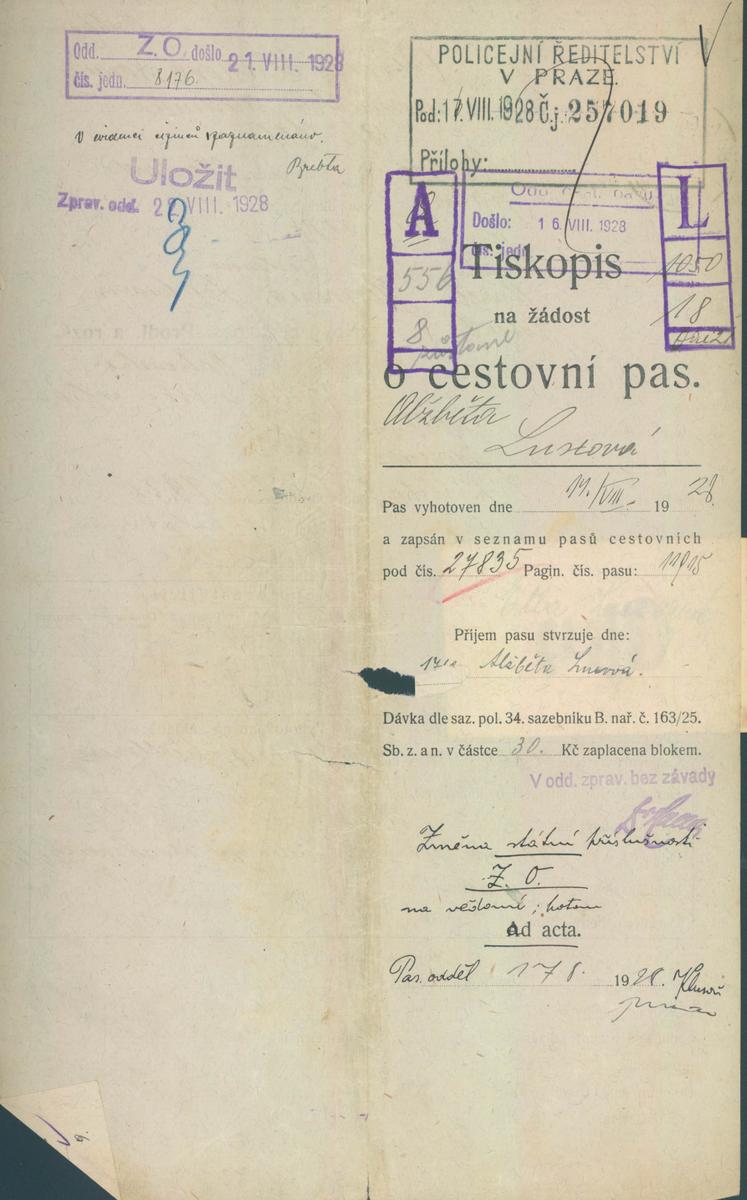 Odd. Z. O. došlo 21. VIII. 1928
čís. jedn. 8176.
V evidenci cizinců poznamenáno.
Uložit
Zprav. odd. 2 VIII. 1928
POLICEJNÍ ŘEDITELSTVÍ
V PRAZE.
Pod: 17. VIII. 1928 Č.j. 257019
Přílohy:
A
L
Došlo: 16. VIII. 1928
čís. jedn.
556
1050
8
18
Tiskopis
na žádost
o cestovní pas.
Alžběta
Lustová
Pas vyhotoven dne 17./VIII. 1928.
a zapsán v seznamu pasů cestovních
pod čís. 27835 Pagin. čís. pasu: 11915
Příjem pasu stvrzuje dne:
Alžběta
Dávka dle saz. pol. 34. sazebníku B. nař. č. 163/25.
Sb. z. a n. v částce 30. Kč zaplacena blokem.
V odd. zprav. bez závady
Změna státní příslušnosti
Z. O.
na vědomí; potom
Ad acta.
Pas. odděl 17 8. 1928.